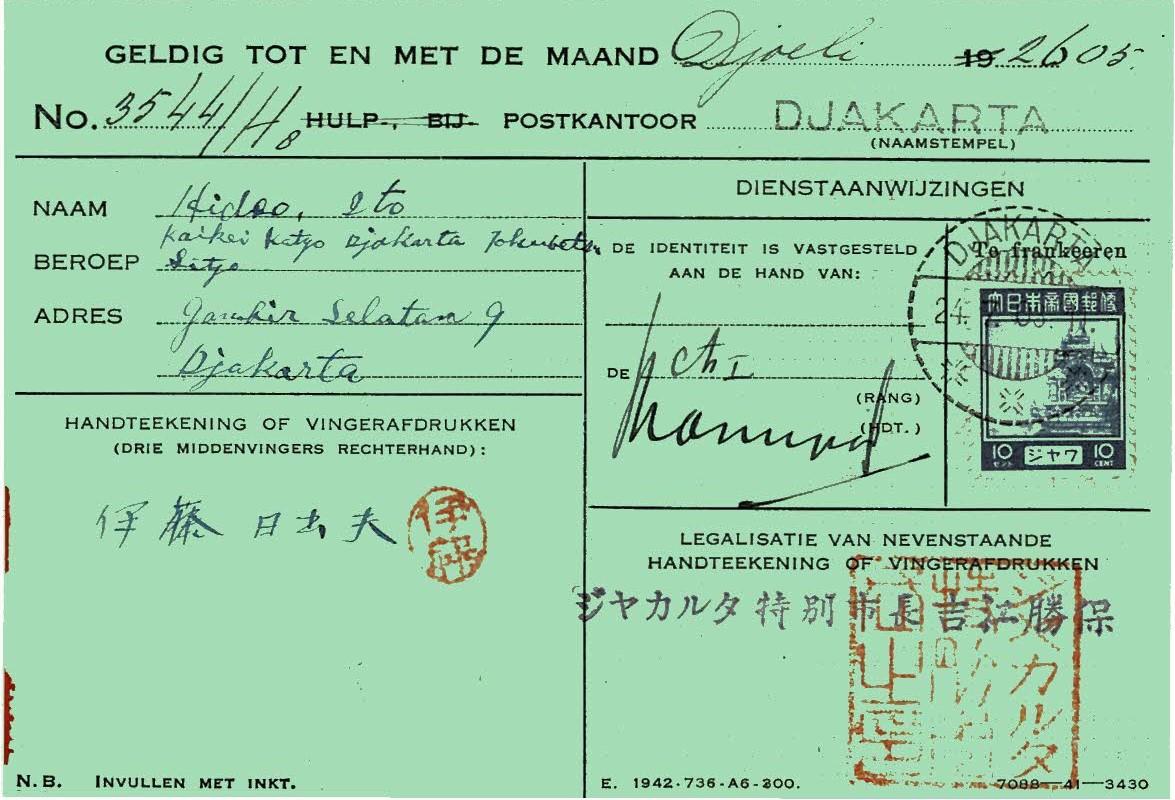 GELDIG TOT EN MET DE MAAND Djoeli 19 2605.
No. 3544/H8 HULP-, BIJ- POSTKANTOOR DJAKARTA
(NAAMSTEMPEL)
NAAM Hideo, Ito
BEROEP Kaikei Katyo Djakarta Tokubetu
Sityo
ADRES Gambir Selatan 9
Djakarta
HANDTEEKENING OF VINGERAFDRUKKEN
(DRIE MIDDENVINGERS RECHTERHAND):
伊藤日出夫
伊藤
N.B. INVULLEN MET INKT.
DIENSTAANWIJZINGEN
DE IDENTITEIT IS VASTGESTELD
AAN DE HAND VAN:
DE
(RANG)
(HDT.)
Te frankeeren
DJAKARTA
24.
大日本帝國郵便
10 ジャワ 10
セント CENT
LEGALISATIE VAN NEVENSTAANDE
HANDTEEKENING OF VINGERAFDRUKKEN
ジヤカルタ特別市長吉江勝保
ジャカルタ
E. 1942-736-A6-300.
7088—41—3430